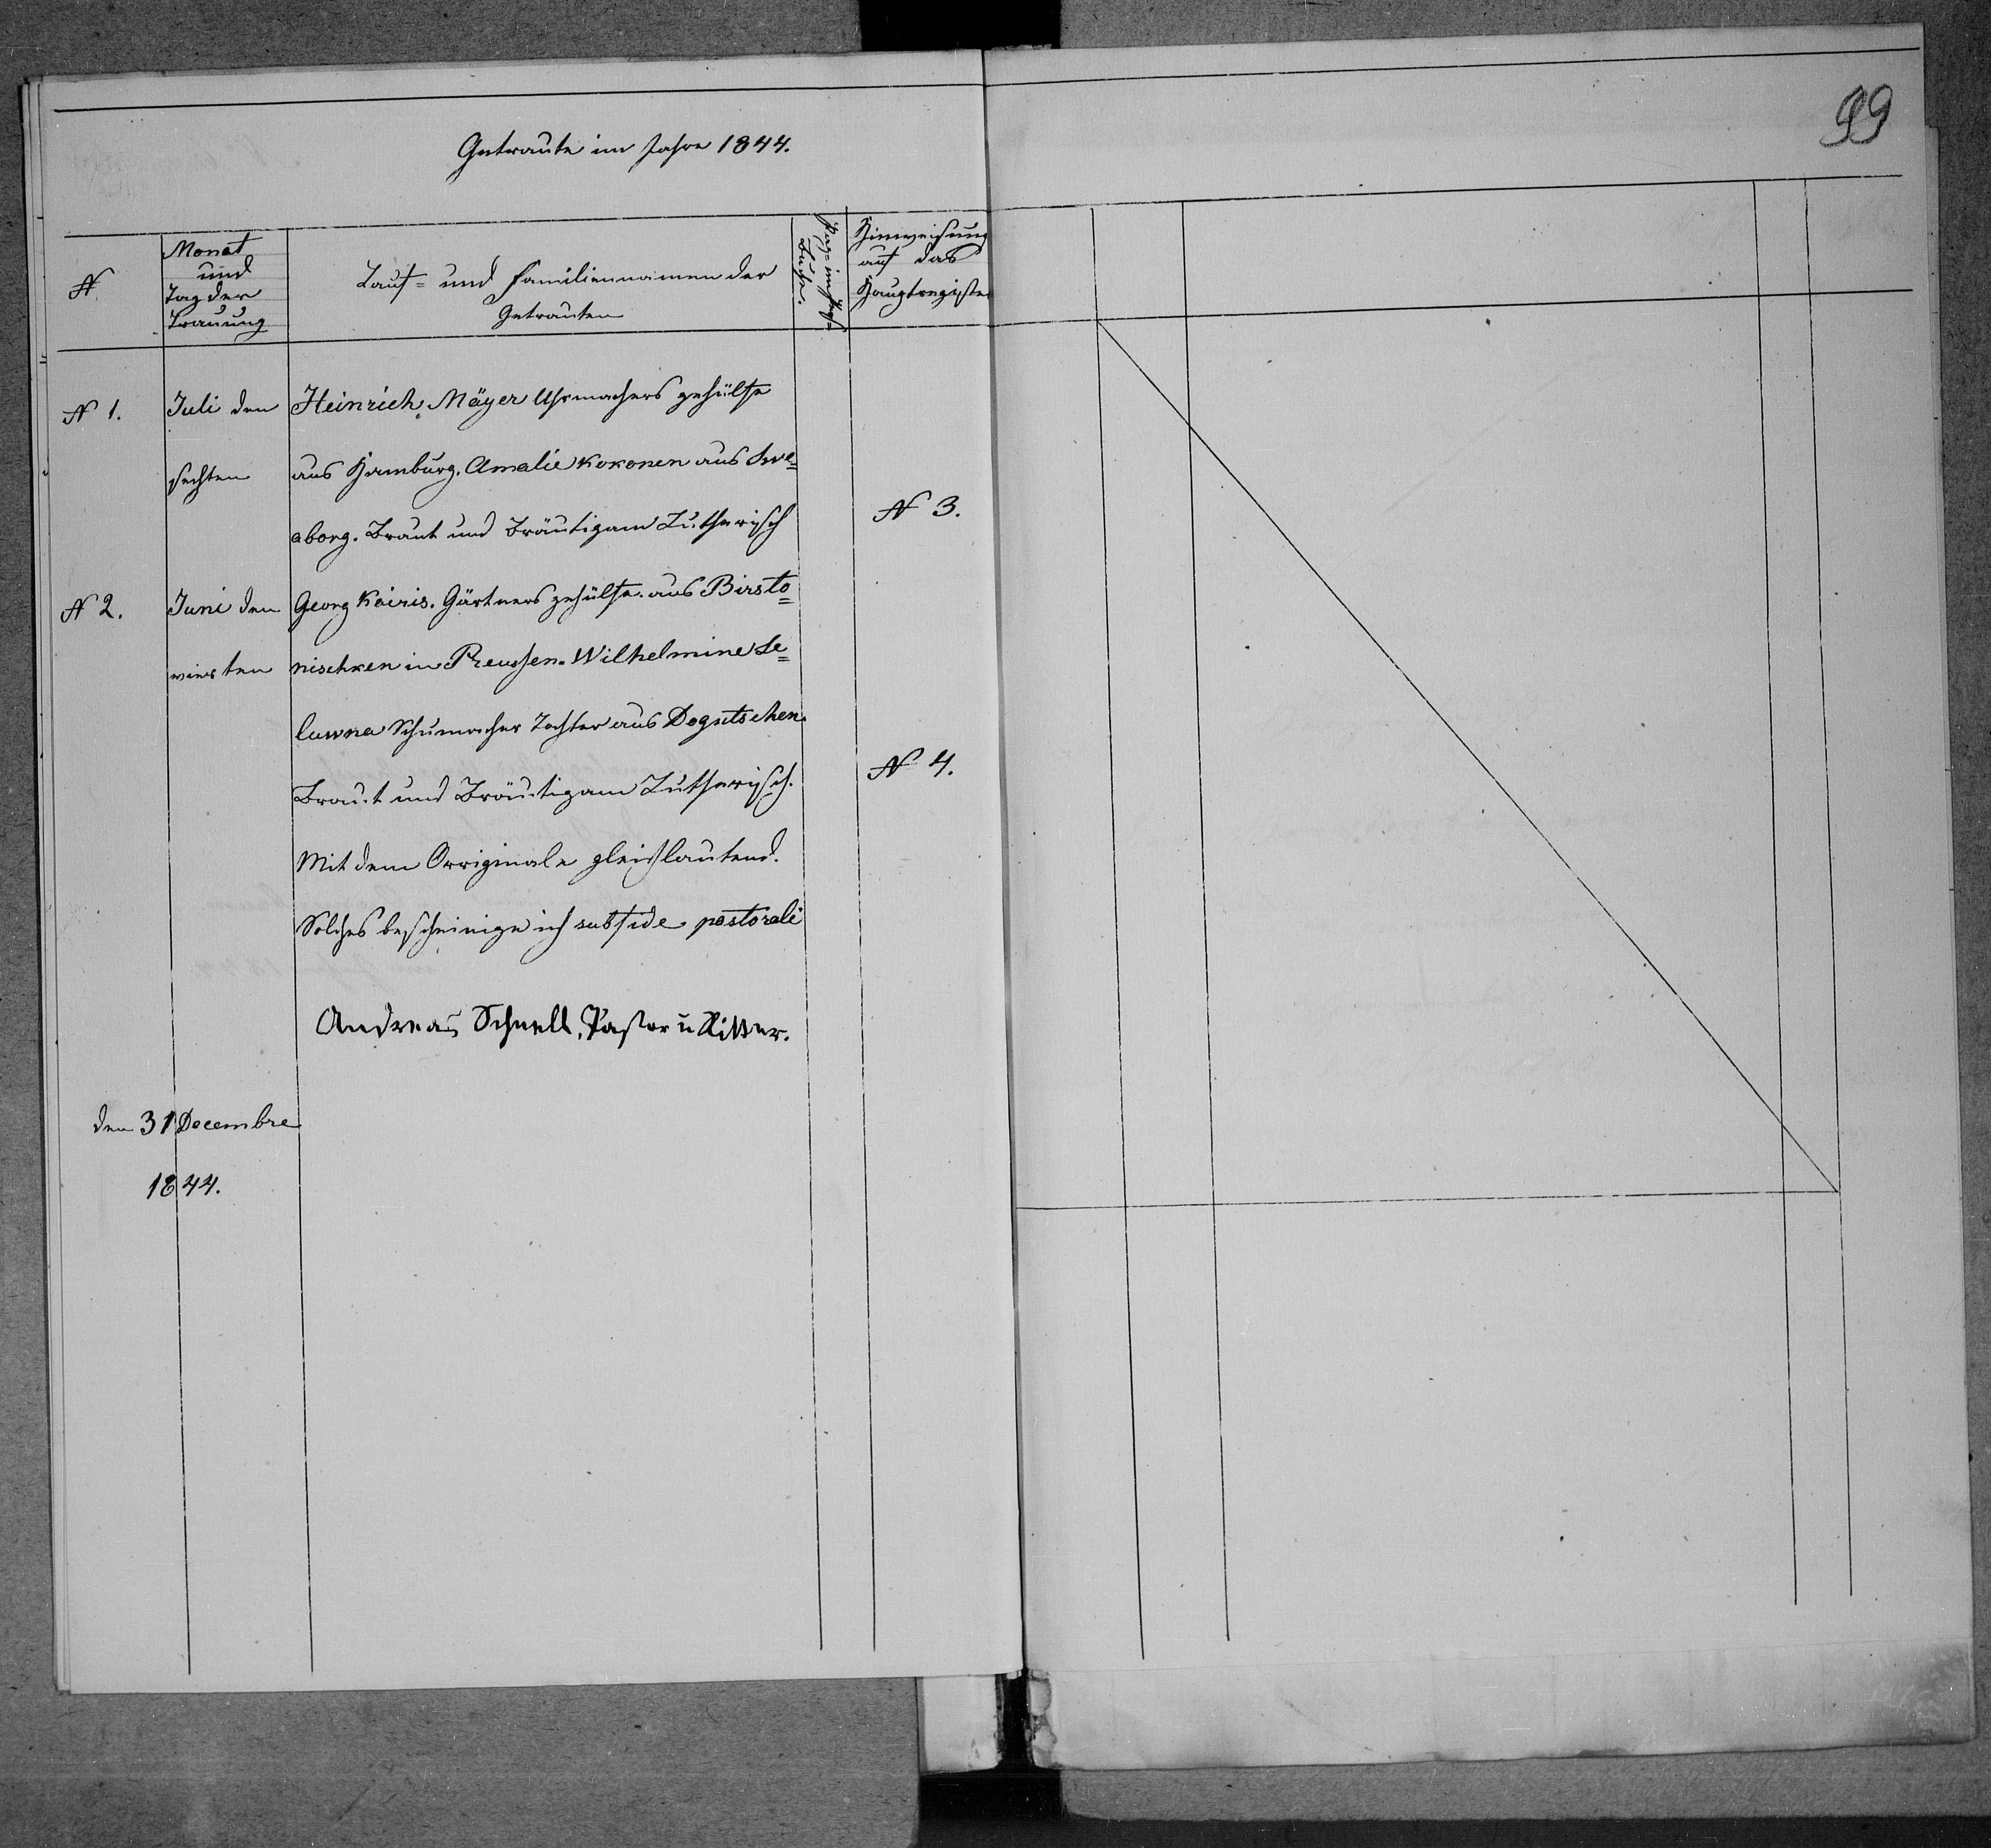 99
Getraute im Jahre 1844.
N
Monat
und
Tag der
Trauung
Tauf= und Familiennamen der
Getrauten
Buche.
Hinweisung
auf das
Hauptregister
N 1. Juli den Heinrich Mäyer Uhrmachers gehülfe
sechsten aus Hamburg. Amalie Kokonen aus Swe=
aborg. Braut und Bräutigam Lutherisch N 3.
N 2. Juni den Georg Kairis. Gärtners gehülfe. aus Birsto=
vierten nischken in Preussen. Wilhelmine Se=
luwna Schumacher Tochter aus Degutschen.
Braut und Bräutigam Lutherisch. N 4.
Mit dem Orriginale gleichlautend.
Solches bescheinige ich sub fide pastorali
Andreas Schnell, Pastor u Ritter.
den 31 Decembre
1844.